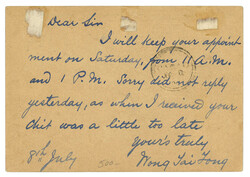 Dear Sir
I will keep your appoint
ment on Saturday, from 11 A.M.
and 1 P.M. Sorry did not reply
yesterday, as when I received your
Chit was a little too late
yours truly
8th July
Wong Tai Fong